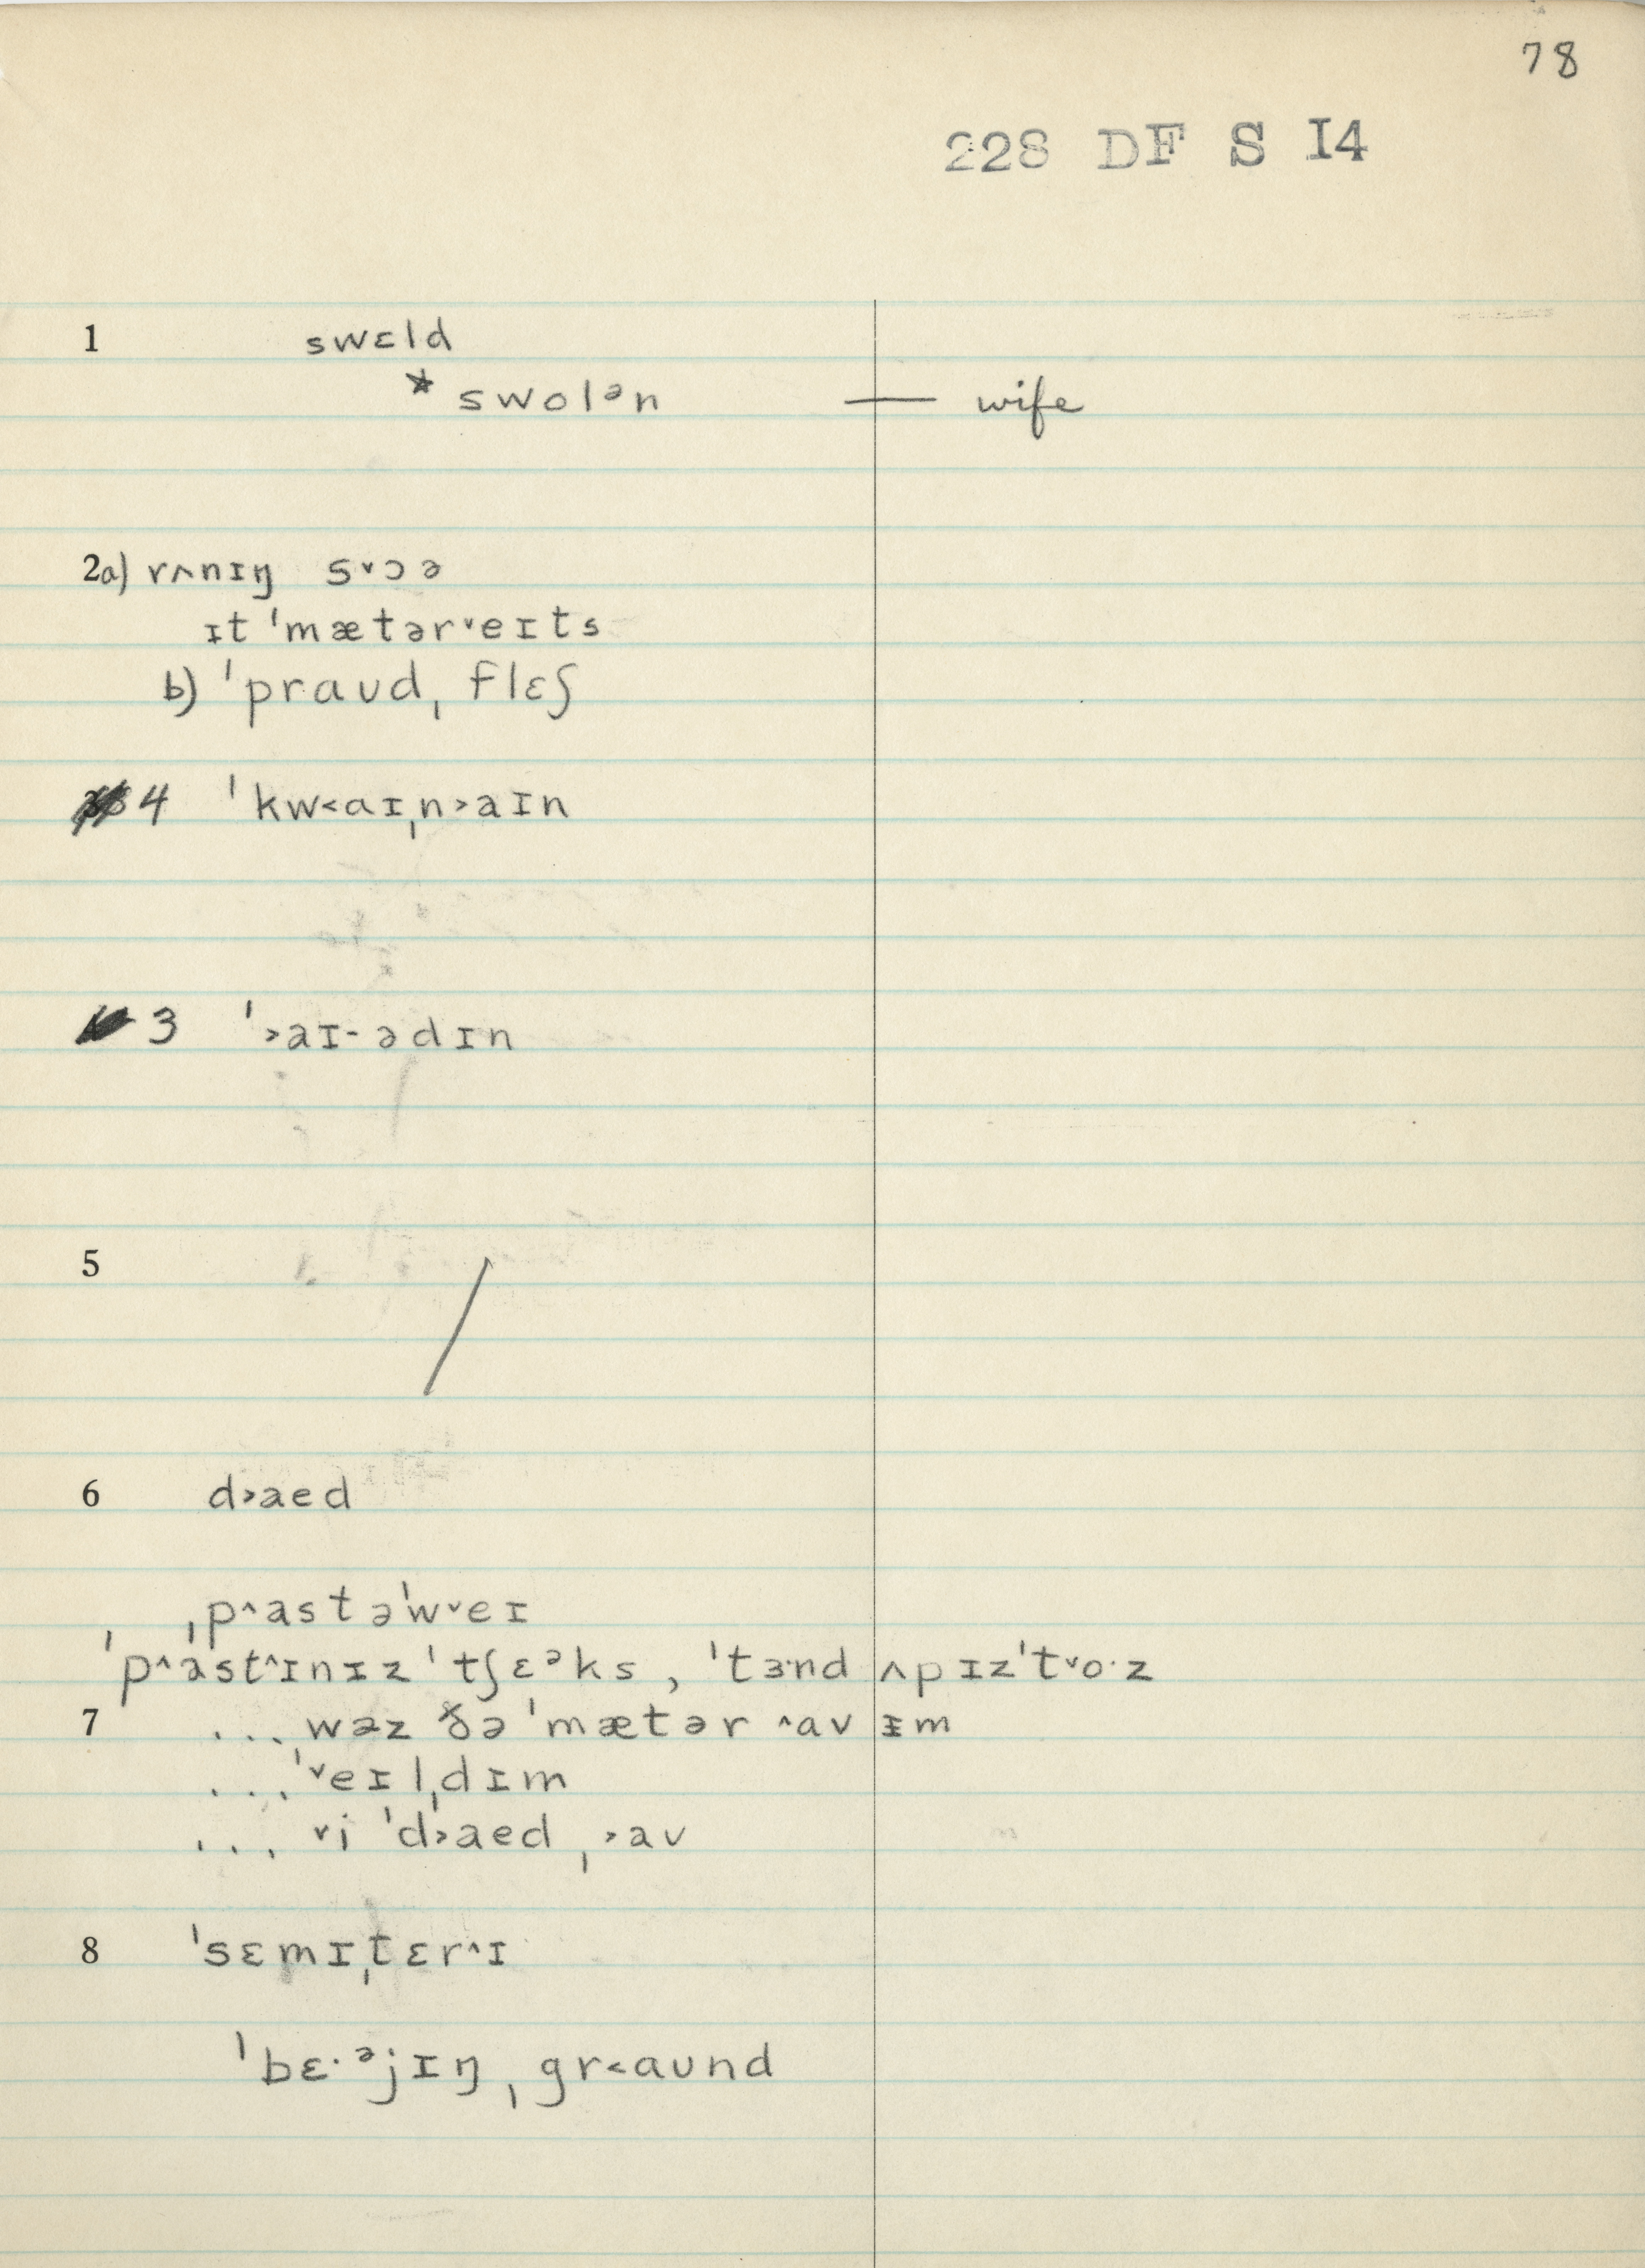 78
228 DF S I4
1 swɛld
* swolᵊn — wife
2a) rʌnɪŋ s˅ɔə
ɪt ˈmætər˅eɪts
b) ˈpraʊdˌflɛʃ
4 ˈkw˂aɪˌn˃aɪn
3 ˈ˃aɪ-ədɪn
5 /
6 d˃aed
ˌp˄astəˈw˅eɪ
ˈp˄ast˄ɪnɪzˈtʃɛᵊks, ˈtɜ·nd ʌpɪzˈt˅o·z
7 ... wəz ðə ˈmætər ˄av ɪm
... ˈ˅eɪlˌdɪm
... ˅i ˈd˃aedˌ˃av
8 ˈsɛmɪˌtɛr˄ɪ
ˈbɛ·ᵊjɪŋˌgr˂aʊnd